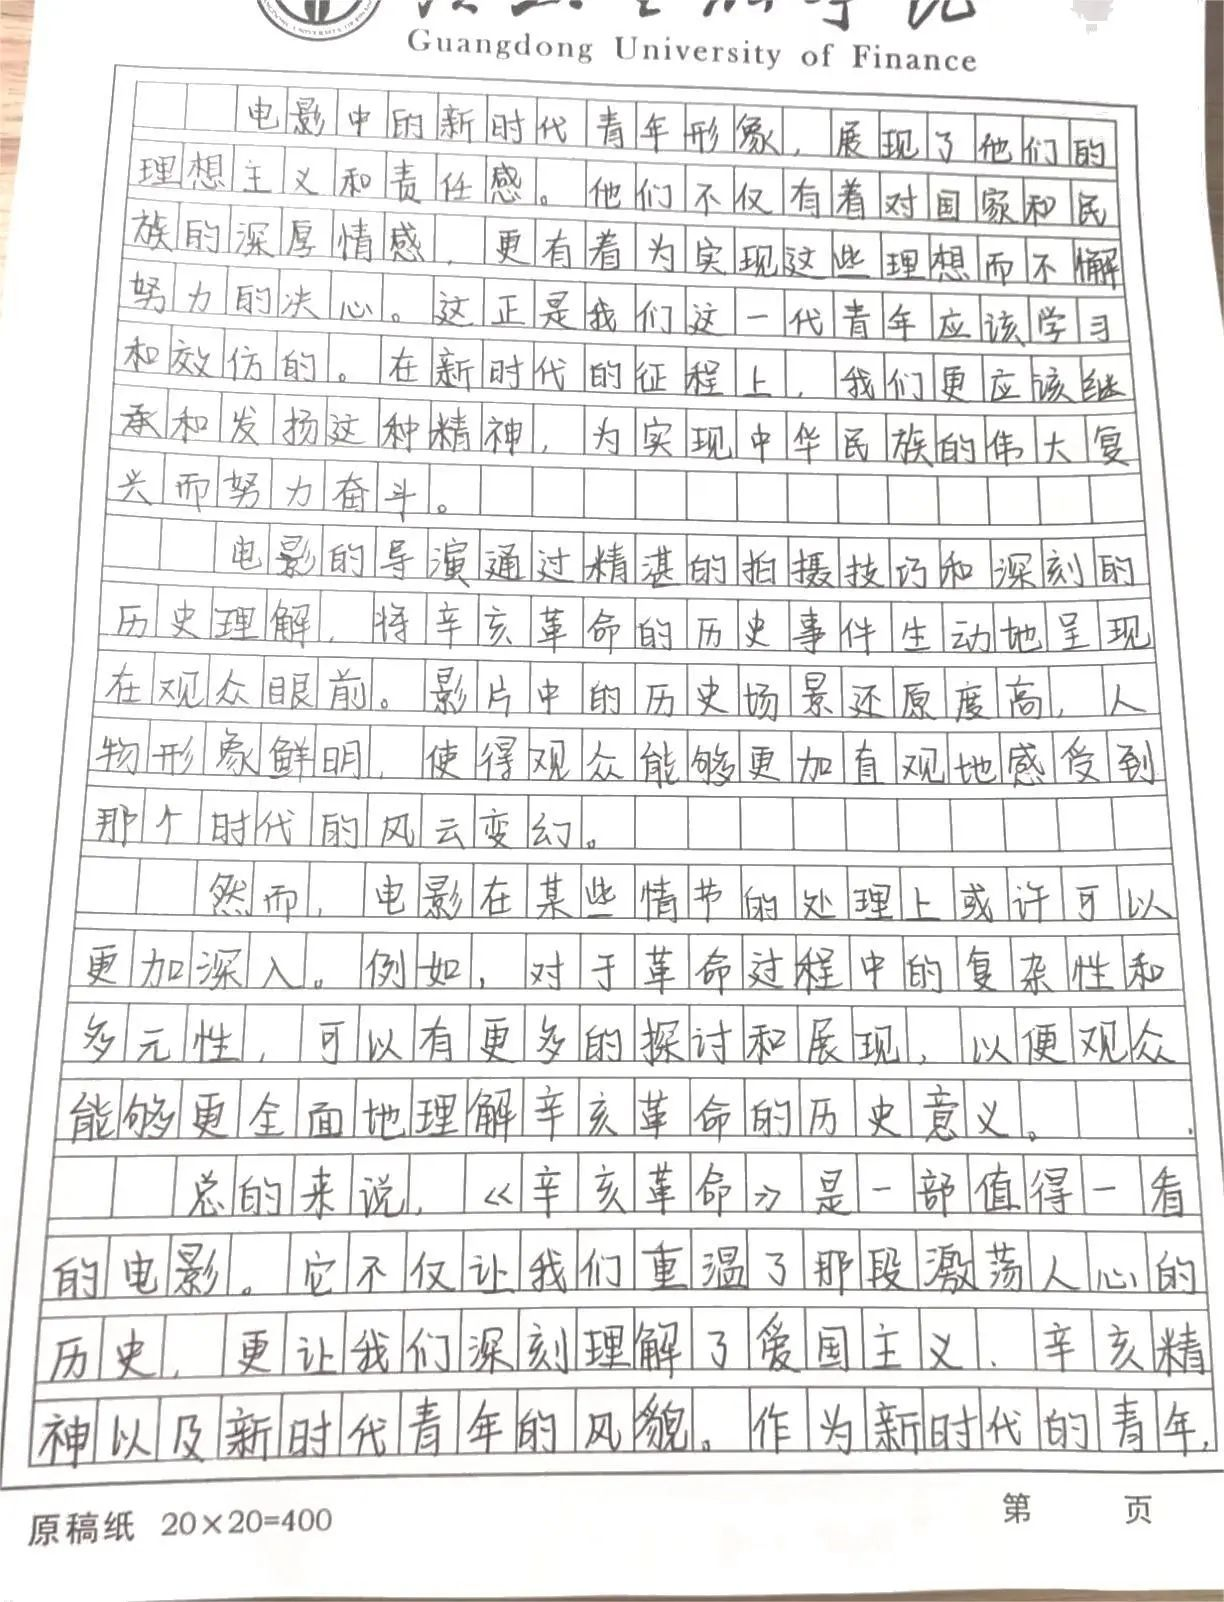 Guangdong University of Finance
电影中的新时代青年形象，展现了他们的
理想主义和责任感。他们不仅有着对国家和民
族的深厚情感，更有着为实现这些理想而不懈
努力的决心。这正是我们这一代青年应该学习
和效仿的。在新时代的征程上，我们更应该继
承和发扬这种精神，为实现中华民族的伟大复
兴而努力奋斗。
电影的导演通过精湛的拍摄技巧和深刻的
历史理解，将辛亥革命的历史事件生动地呈现
在观众眼前。影片中的历史场景还原度高，人
物形象鲜明，使得观众能够更加直观地感受到
那个时代的风云变幻。
然而，电影在某些情节的处理上或许可以
更加深入。例如，对于革命过程中的复杂性和
多元性，可以有更多的探讨和展现，以便观众
能够更全面地理解辛亥革命的历史意义。
总的来说，《辛亥革命》是一部值得一看
的电影。它不仅让我们重温了那段激荡人心的
历史，更让我们深刻理解了爱国主义、辛亥精
神以及新时代青年的风貌。作为新时代的青年，
原稿纸 20×20=400
第 页